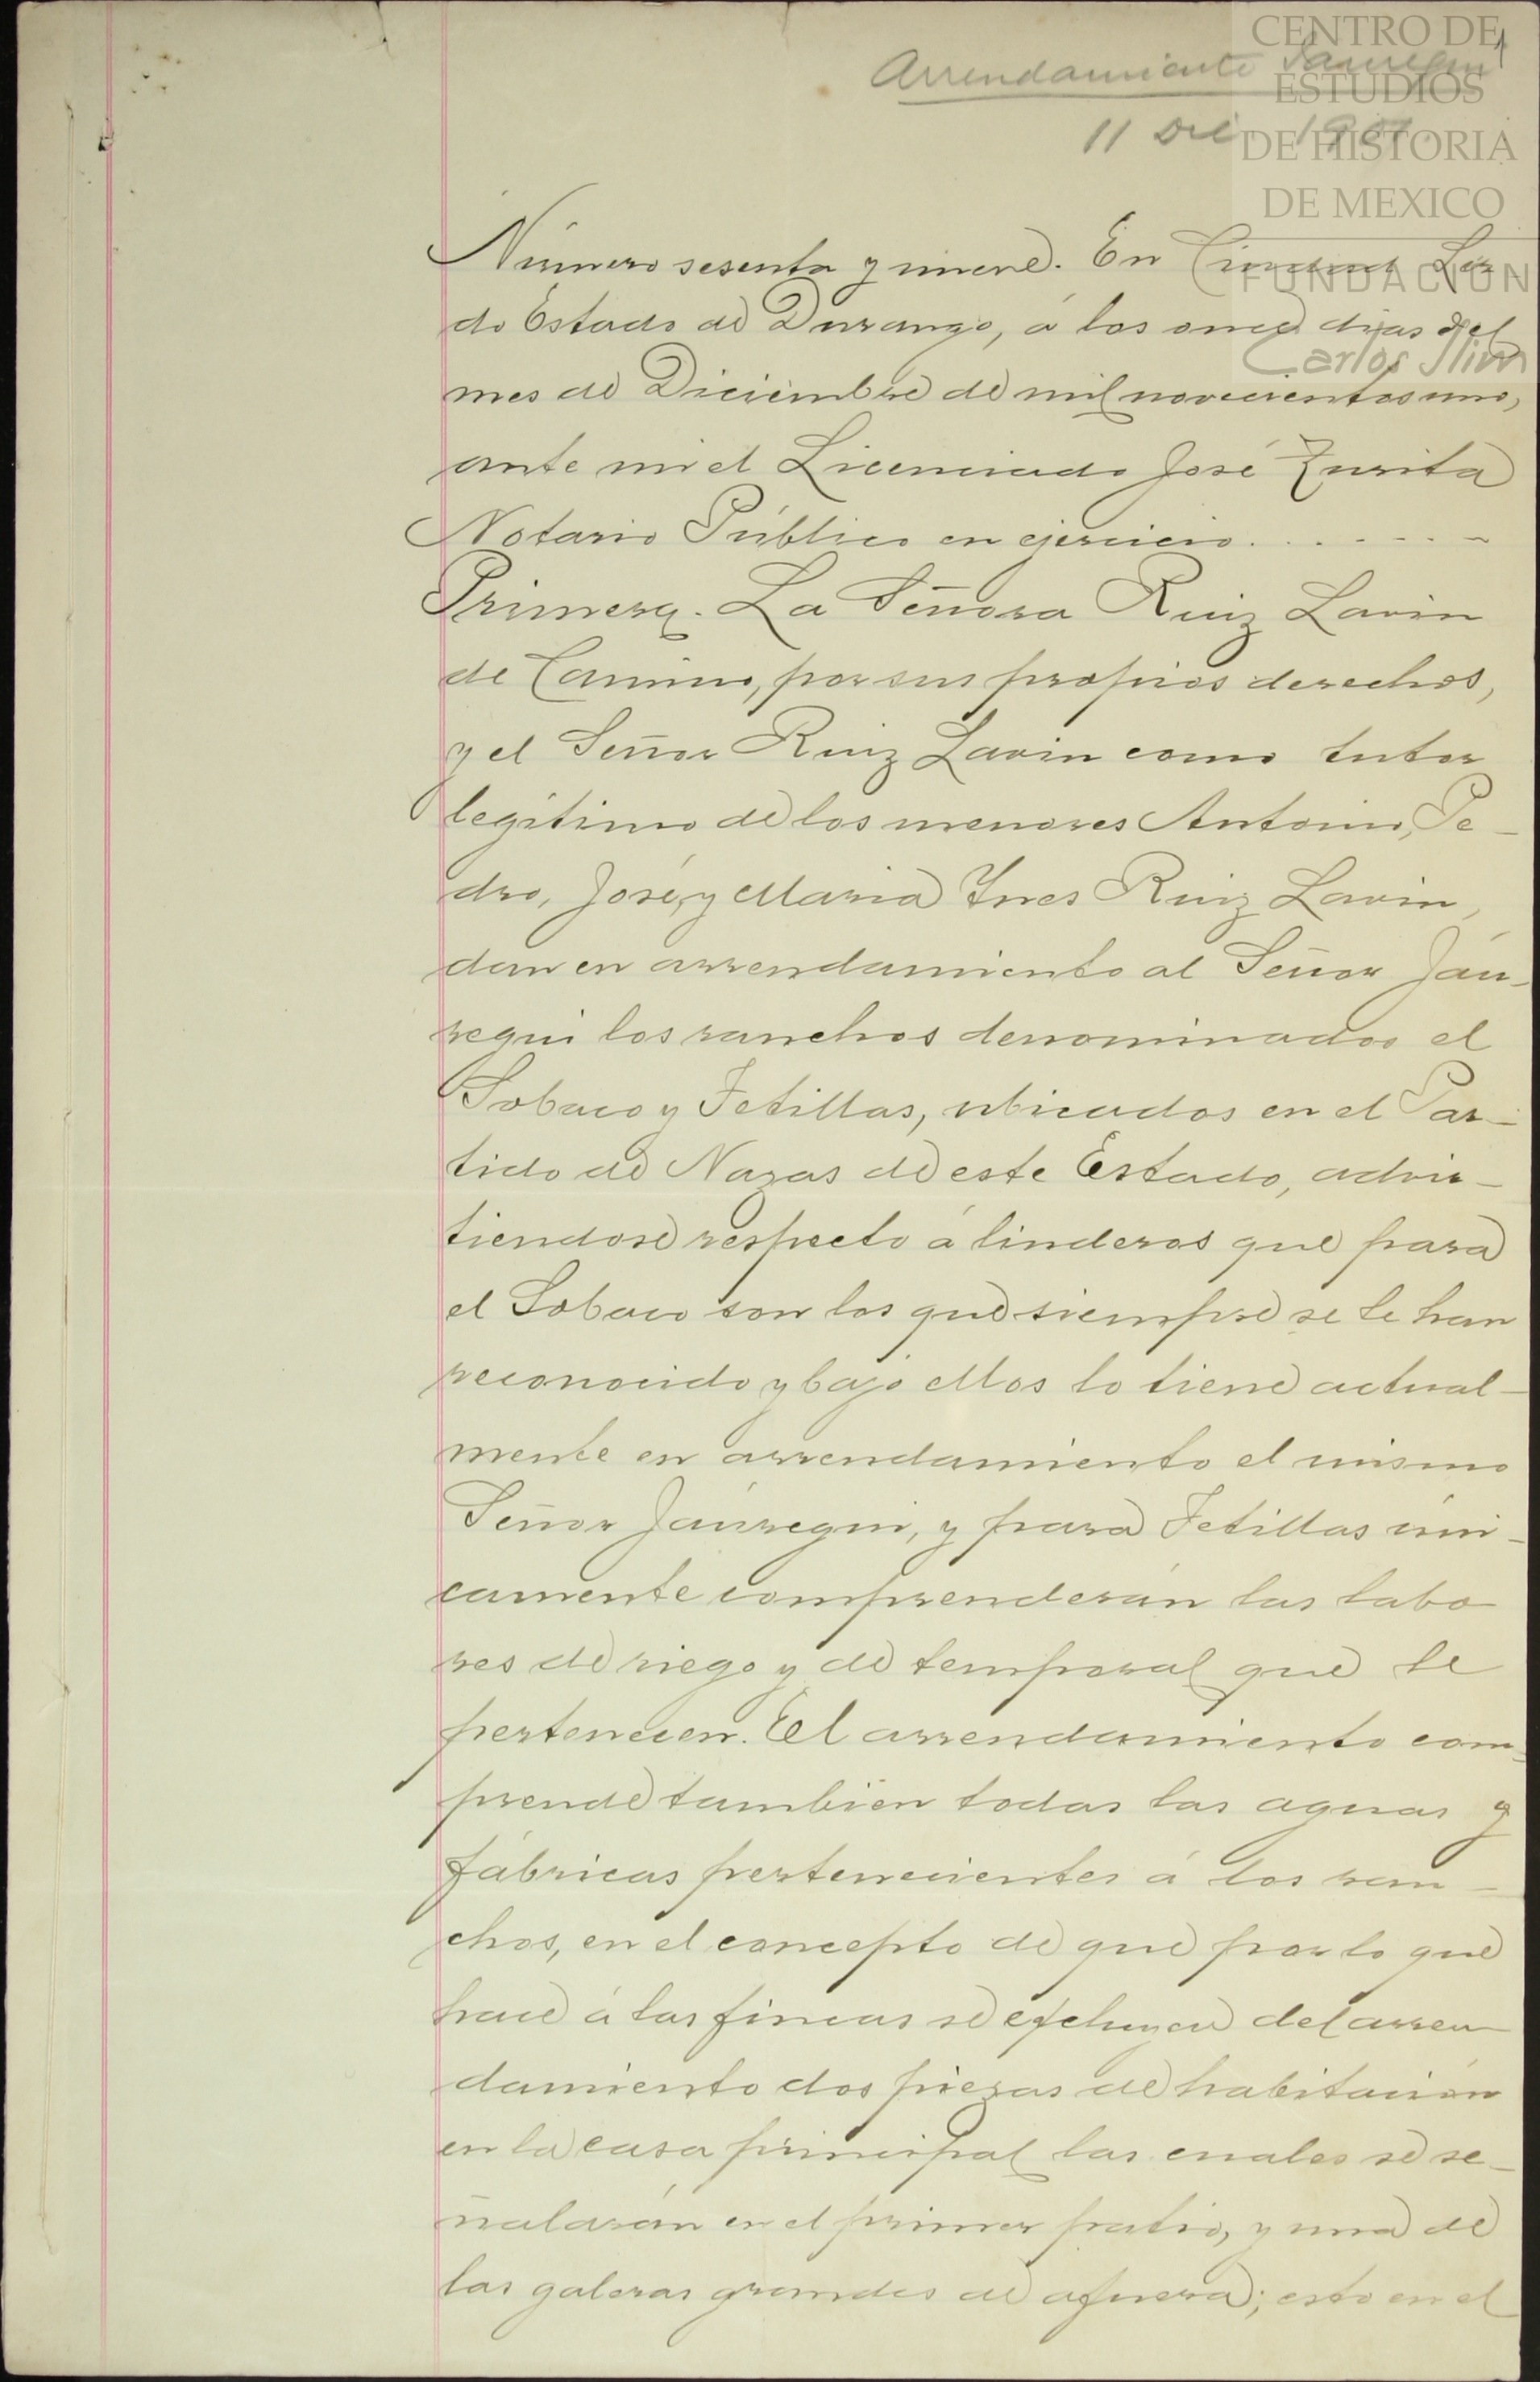 Arrendamiento Jauregui
11 Dic 1901.
1
CENTRO DE
ESTUDIOS
DE HISTORIA
DE MEXICO
FUNDACION
Carlos Slim
Número sesenta y nueve. En Ciudad Ler
do Estado de Durango, á los once dias del
mes de Diciembre de mil novecientos uno,
ante mi el Licenciado José Zurita
Notario Público en ejercicio. . . . - - - -
Primera. La Señora Ruiz Lavin
de Camino, por sus propios derechos,
y el Señor Ruiz Lavin como tutor
legítimo de los menores Antonio, Pe-
dro, José, y Maria Ynes Ruiz Lavin,
dan en arrendamiento al Señor Jáu-
regui los ranchos denominados el
Sobaco y Tetillas, ubicados en el Par-
tido de Nazas de este Estado, advir-
tiendose respecto á linderos que para
el Sobaco son los que siempre se le han
reconocido y bajo ellos lo tiene actual-
mente en arrendamiento el mismo
Señor Jáuregui, y para Tetillas úni-
camente comprenderán las labo
res de riego y de temporal que le
pertenecen. El arrendamiento com-
prende tambien todas las aguas y
fábricas pertenecientes á los ran-
chos, en el concepto de que por lo que
hace á las fincas se excluyen del arren
damiento dos piezas de habitación
en la casa principal las cuales se se-
ñalarán en el primer patio, y una de
las galeras grandes de afuera; esto en el